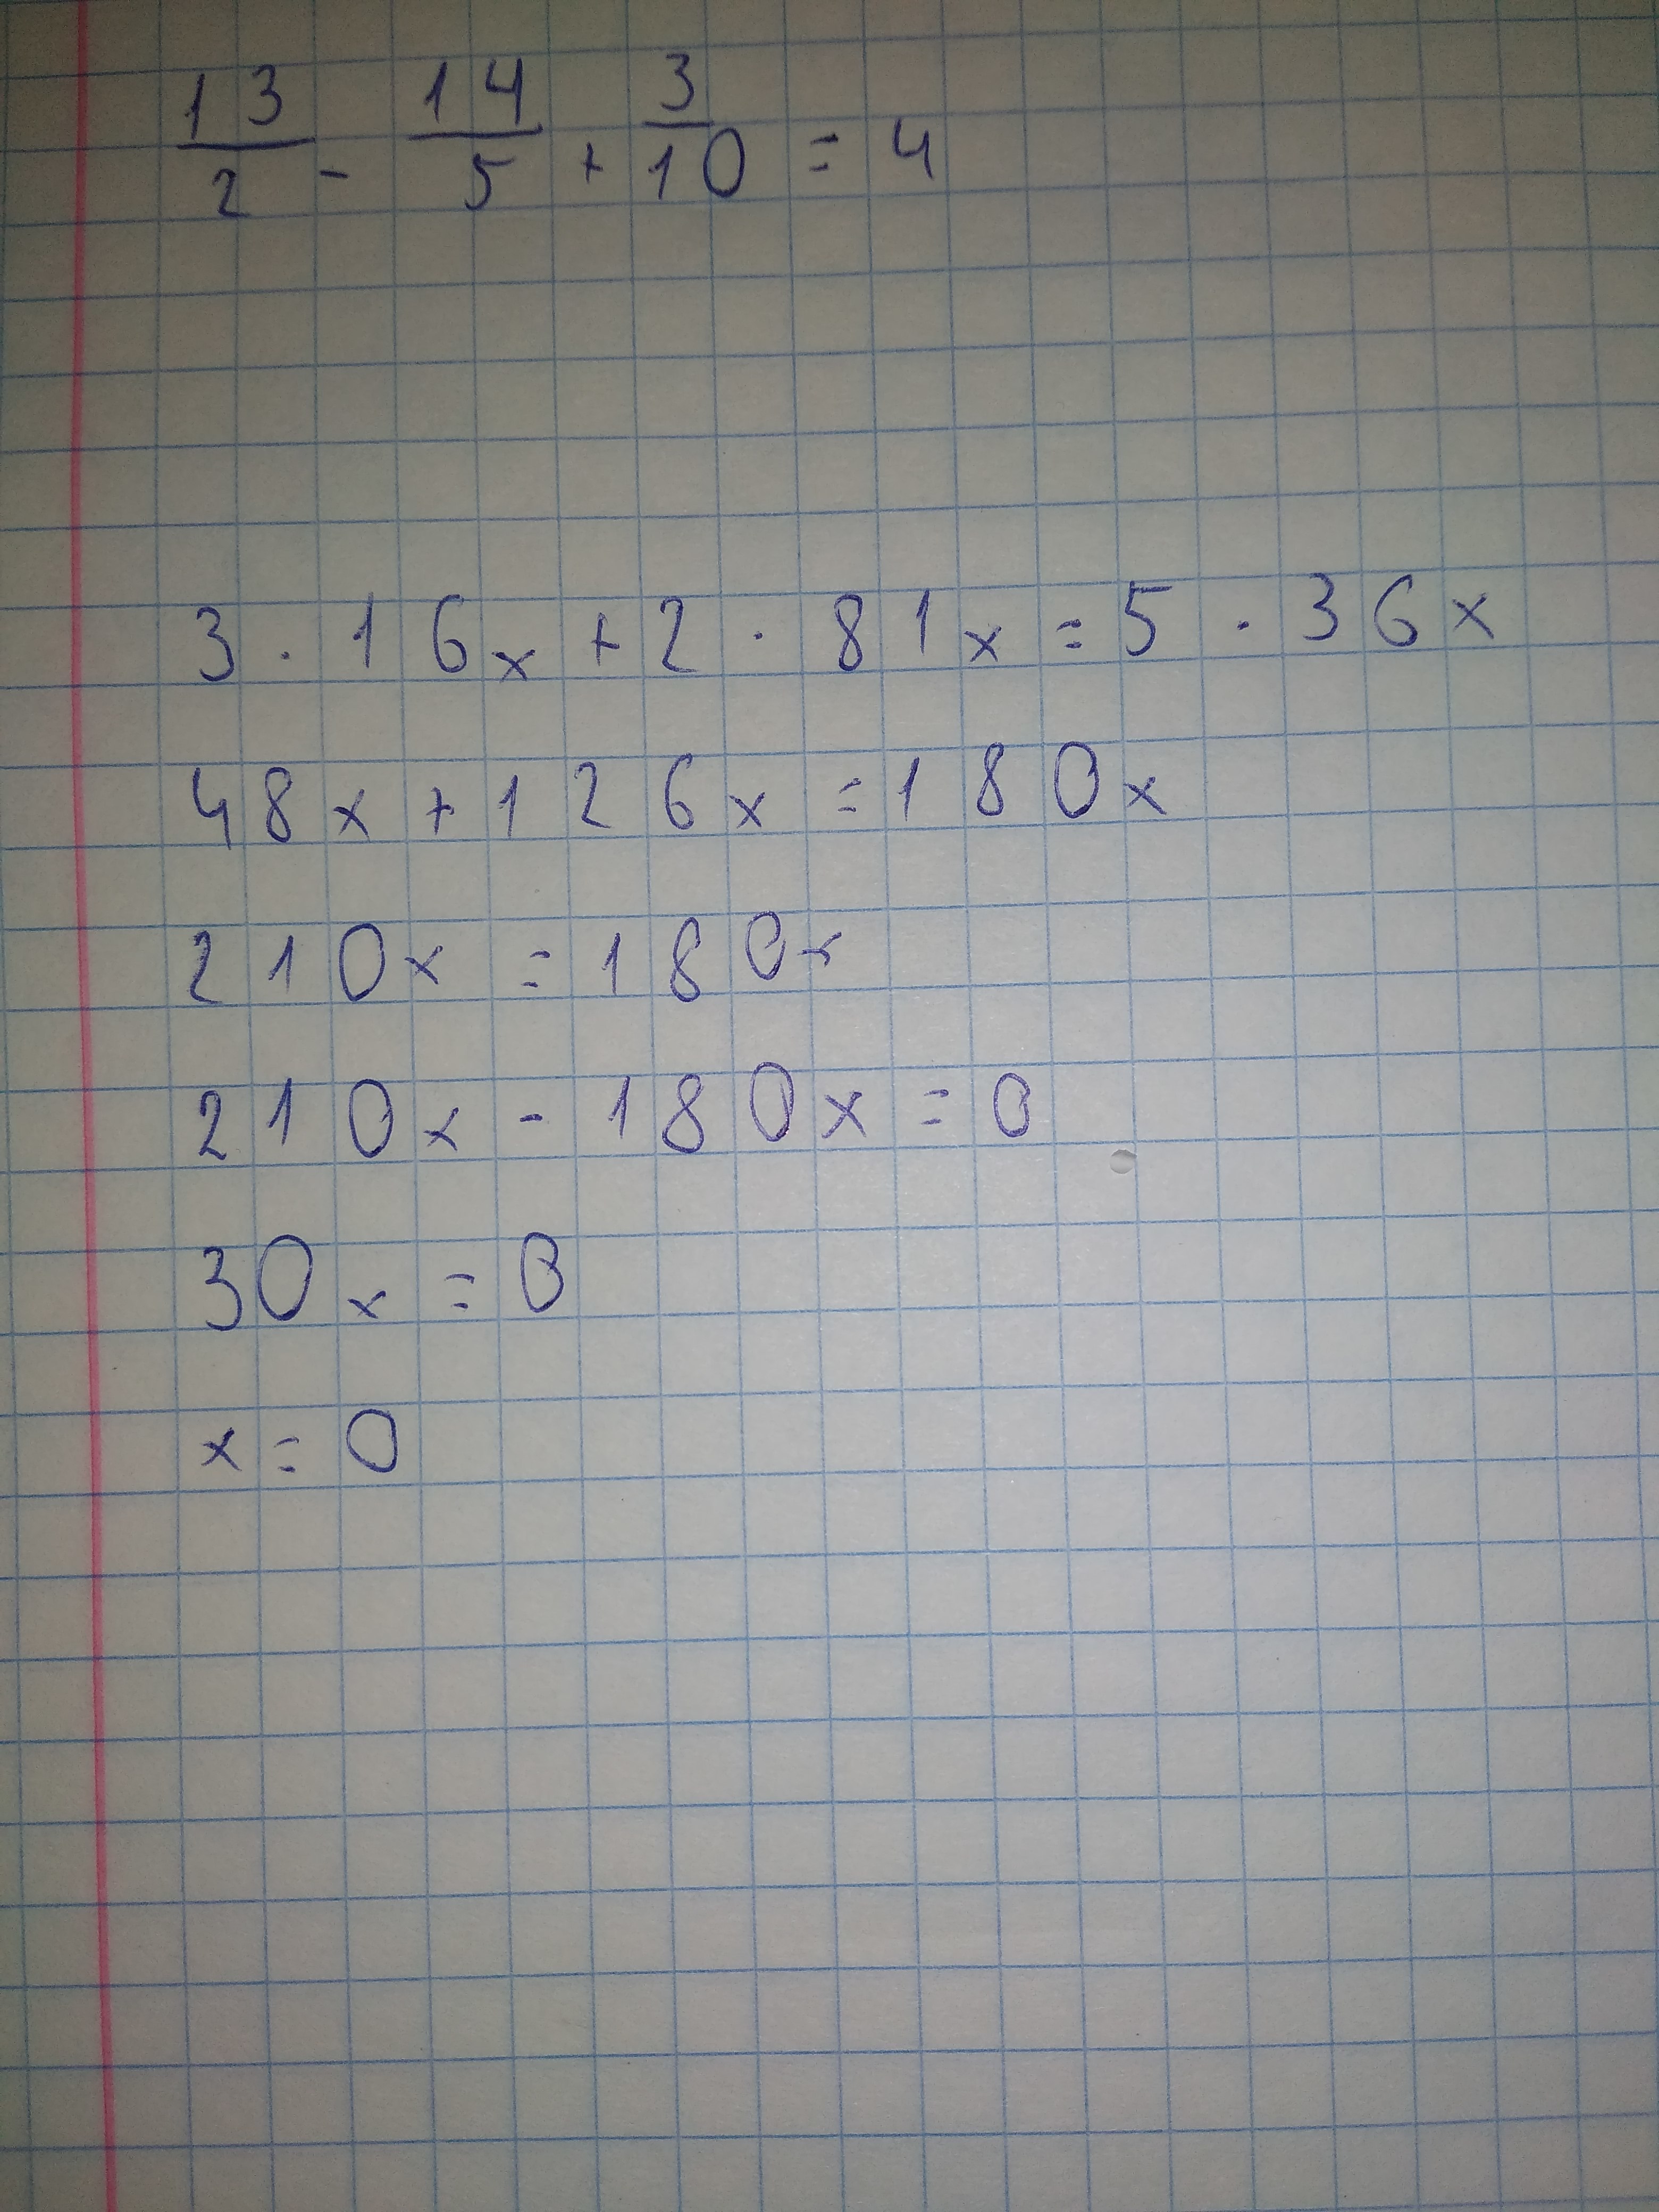 13/2 - 14/5 + 3/10 = 4
3 · 16x + 2 · 81x = 5 · 36x
48x + 126x = 180x
210x = 180x
210x - 180x = 0
30x = 0
x = 0